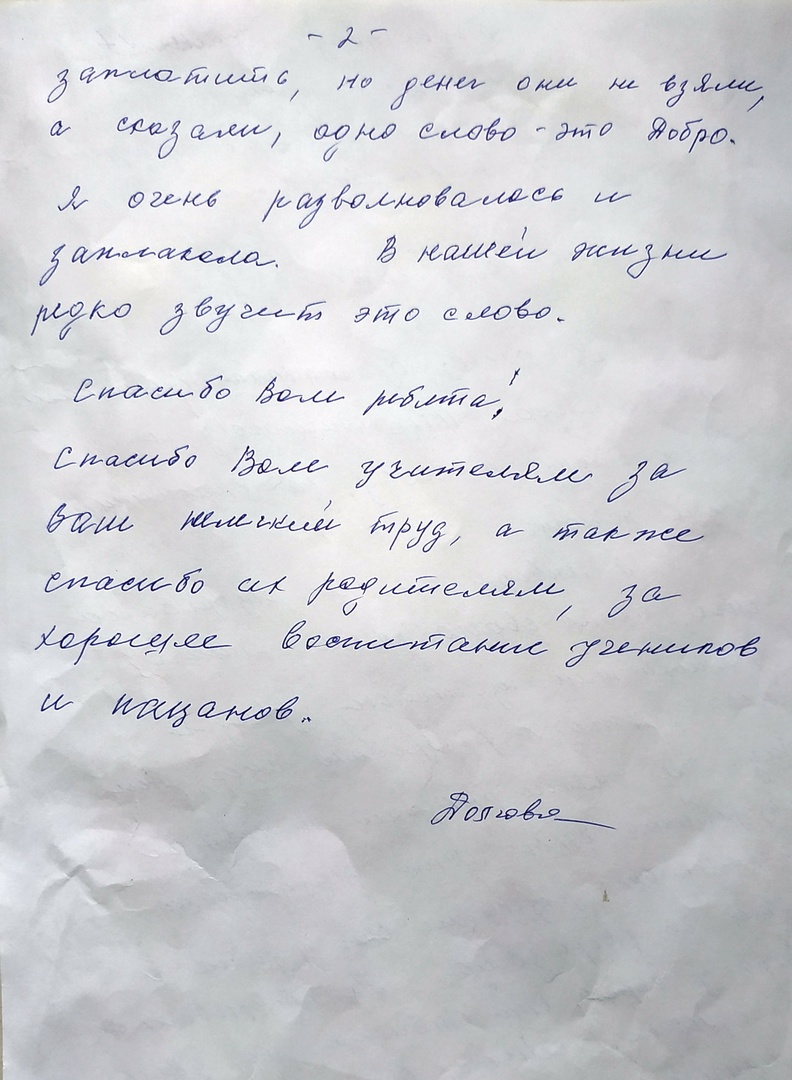 - 2 -
заплатить, но денег они не взяли,
а сказали, одно слово - это Добро.
Я очень разволновалась и
заплакала. В нашей жизни
редко звучит это слово.
Спасибо Вам ребята!
Спасибо Вам учителям за
Ваш нелегкий труд, а также
спасибо их родителям, за
хорошее воспитание учеников
и пацанов.
Долгова